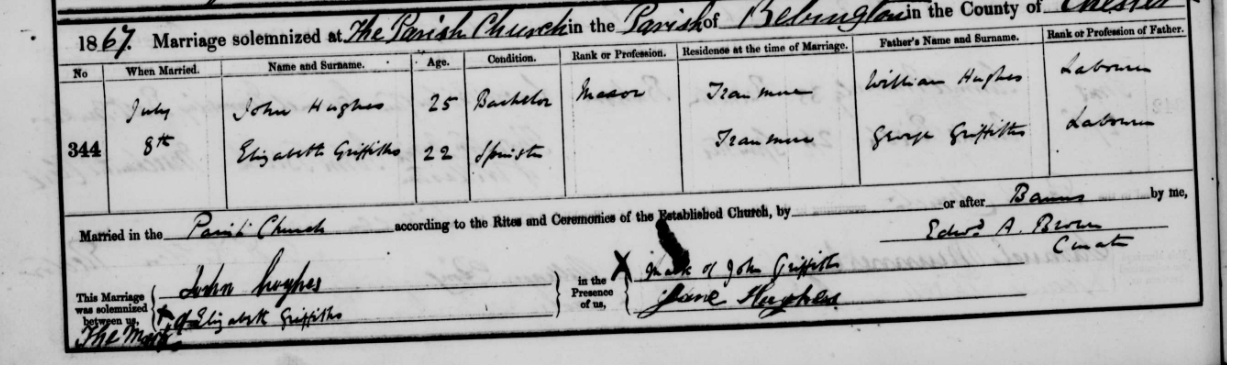 1867. Marriage solemnized at The Parish Church in the Parish of Bebington in the County of Chester
No When Married. Name and Surname. Age. Condition. Rank or Profession. Residence at the time of Marriage. Father's Name and Surname. Rank or Profession of Father.
July John Hughes 25 Bachelor Mason Tranmere William Hughes Labourer
344 8th Elizabeth Griffiths 22 Spinster Tranmere George Griffiths Labourer
Married in the Parish Church according to the Rites and Ceremonies of the Established Church, by or after Banns by me,
Edwd. A. Brown
Curate
This Marriage was solemnized between us, John Hughes in the Presence of us, X Mark of John Griffiths
The Mark X of Elizabeth Griffiths Jane Hughes